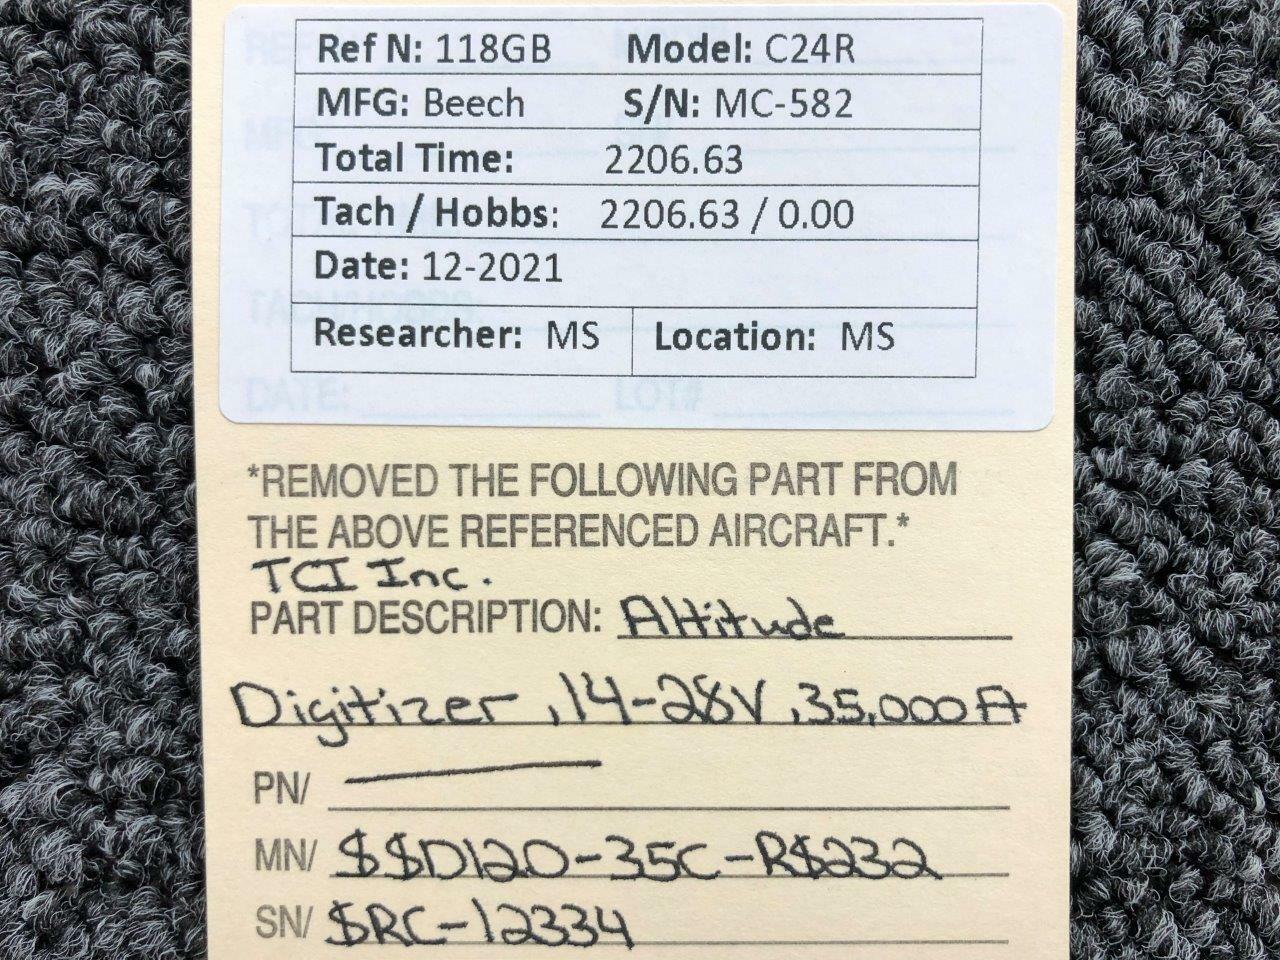 Ref N: 118GB Model: C24R
MFG: Beech S/N: MC-582
Total Time: 2206.63
Tach / Hobbs: 2206.63 / 0.00
Date: 12-2021
Researcher: MS Location: MS
DATE: LOT#
*REMOVED THE FOLLOWING PART FROM
THE ABOVE REFERENCED AIRCRAFT.*
TCI Inc.
PART DESCRIPTION: Altitude
Digitizer, 14-28V, 35,000 Ft
PN/
MN/ $$D120-35C-R$232
SN/ $RC-12334